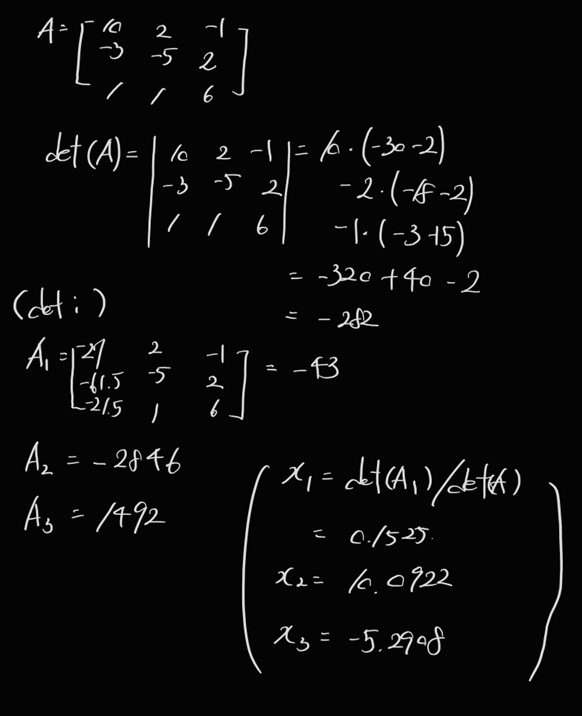 A = [ 10 2 -1
-3 -5 2
1 1 6 ]
det(A) = | 10 2 -1 | = 10·(-30-2)
-3 -5 2 -2·(-18-2)
1 1 6 -1·(-3+5)
= -320 + 40 - 2
= -282
(det i)
A₁ = [ 27 2 -1
-61.5 -5 2 = -43
-21.5 1 6 ]
A₂ = -2846
A₃ = 1492
x₁ = det(A₁)/det(A)
= 0.1525
x₂ = 10.0922
x₃ = -5.2908